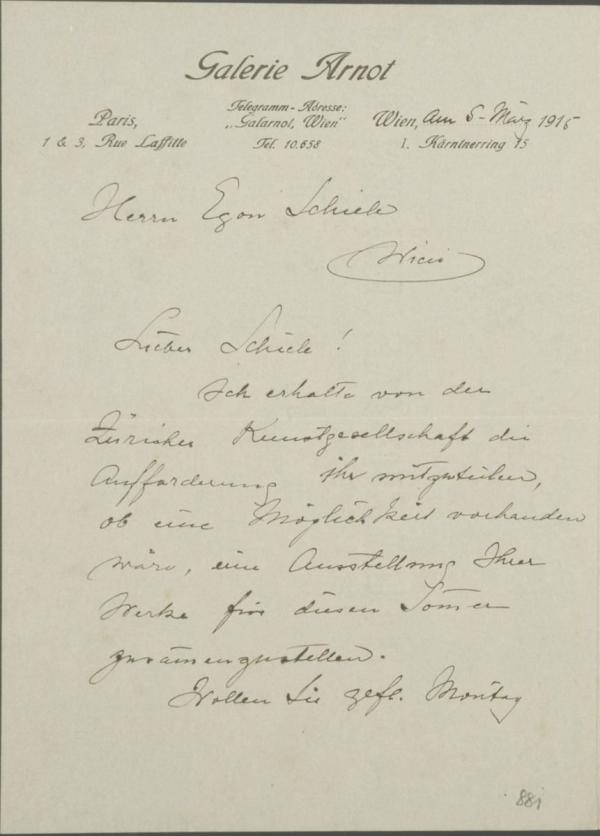 Galerie Arnot
Paris,
1 & 3, Rue Laffitte
Telegramm-Adresse:
„Galarnot, Wien"
Tel. 10.658
Wien, am 5-März 1915
I. Kärntnerring 15
Herrn Egon Schiele
Wien
Lieber Schiele!
Ich erhalte von der
Züricher Kunstgesellschaft die
Aufforderung ihr mitzuteilen,
ob eine Möglichkeit vorhanden
wäre, eine Ausstellung Ihrer
Werke für diesen Som̄er
zusam̄enzustellen.
Wollen Sie gefl. Montag
881